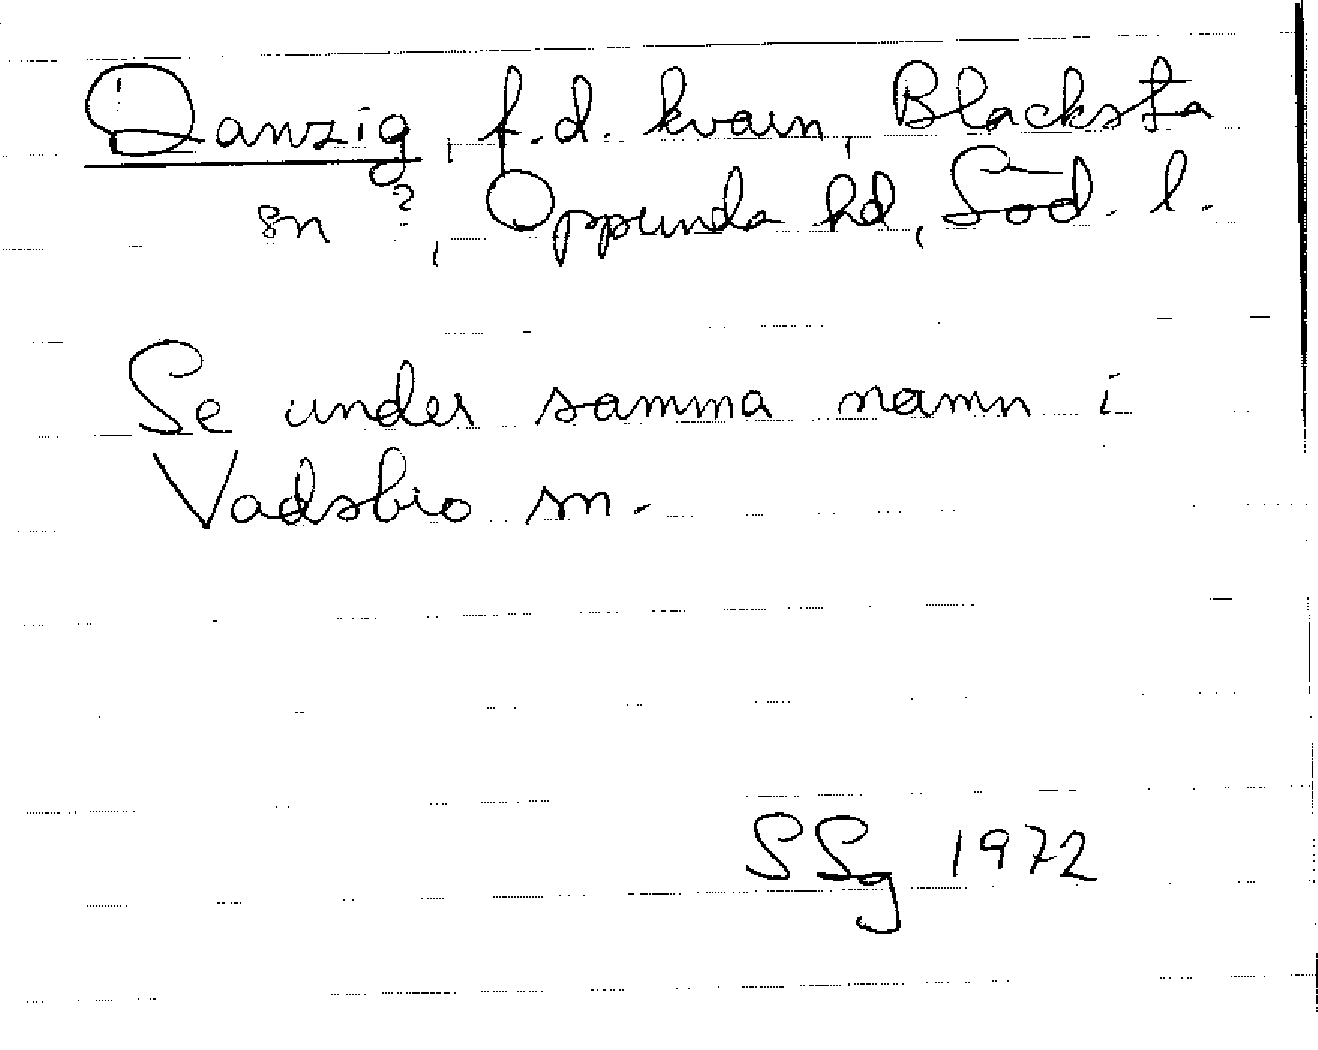 Danzig, f.d. kvarn, Blacksta
sn?, Oppunda hd, Söd. l.
Se under samma namn i
Vadsbro sn.
SSg 1972